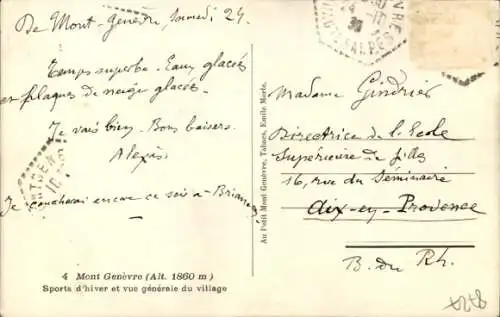 De Mont-Genèvre, Samedi 24.
Temps superbe. Eaux glacées
et plaques de neige glacées.
Je vais bien. Bons baisers.
Alexis
Je coucherai encore ce soir à Briançon
4 Mont Genèvre (Alt. 1860 m)
Sports d'hiver et vue générale du village
Au Petit Mont Genèvre, Tabacs, Emile Merle.
HAUTES ALPES
Madame Gindrier
Directrice de l'Ecole
Supérieure de filles
16, rue du Séminaire
Aix-en-Provence
B. du Rh.